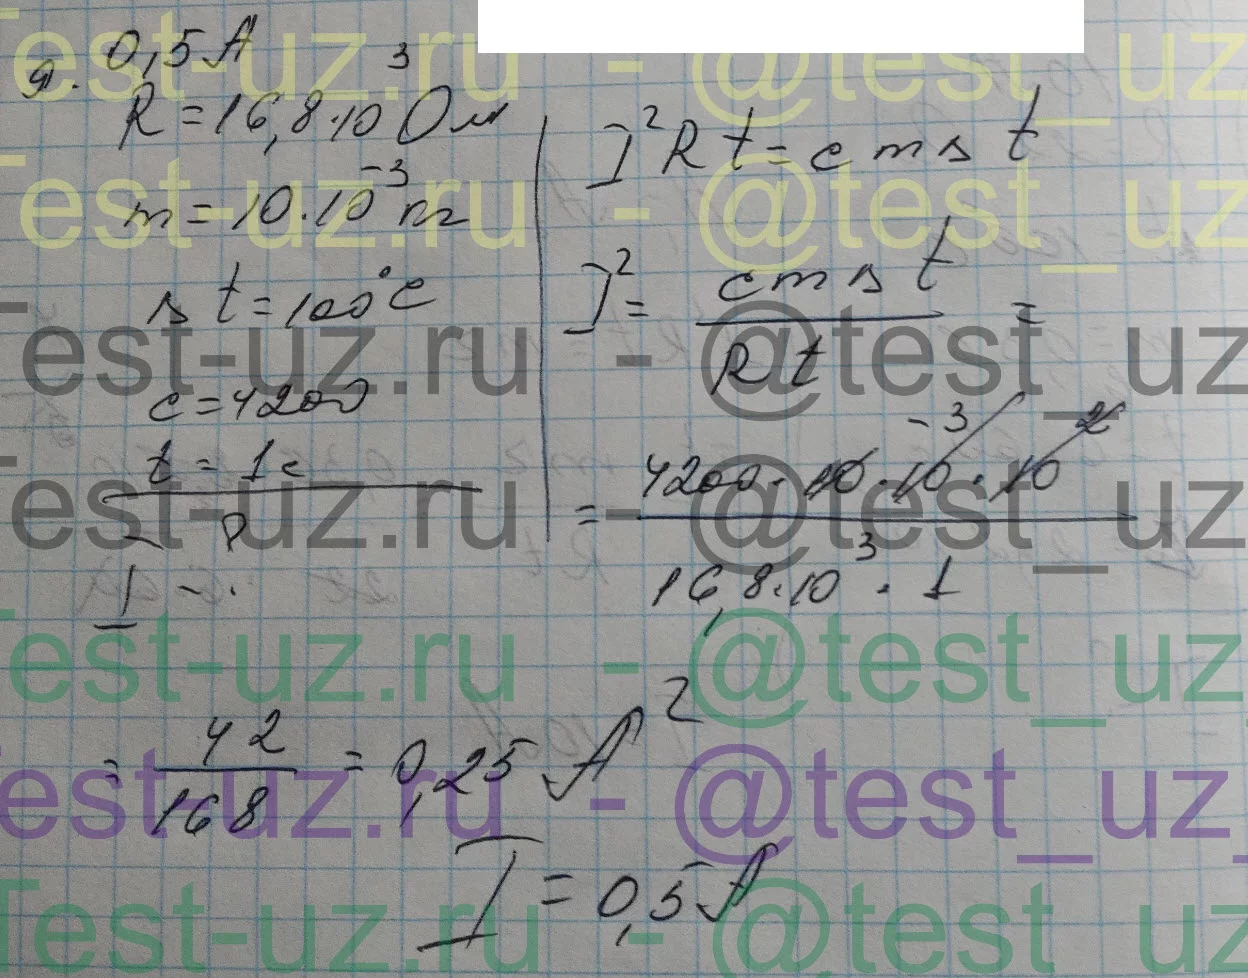 9. 0,5 A
R = 16,8·10³ Ом
m = 10·10⁻³ кг
Δt = 100°C
c = 4200
t = 1c
I - ?
I²Rt = cmΔt
I² = cmΔt / Rt =
= 4200·10·10⁻³·10² / 16,8·10³·1
= 42 / 168 = 0,25 A²
I = 0,5 A
Test-uz.ru - @test_uz
Test-uz.ru - @test_uz
Test-uz.ru - @test_uz
Test-uz.ru - @test_uz
Test-uz.ru - @test_uz
Test-uz.ru - @test_uz
Test-uz.ru - @test_uz